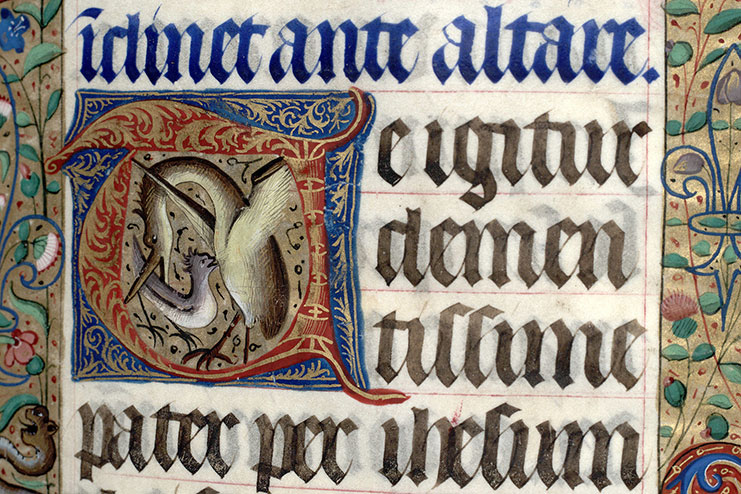 iclinet ante altare.
Te igitur
clemen
tissime
pater per ihesum